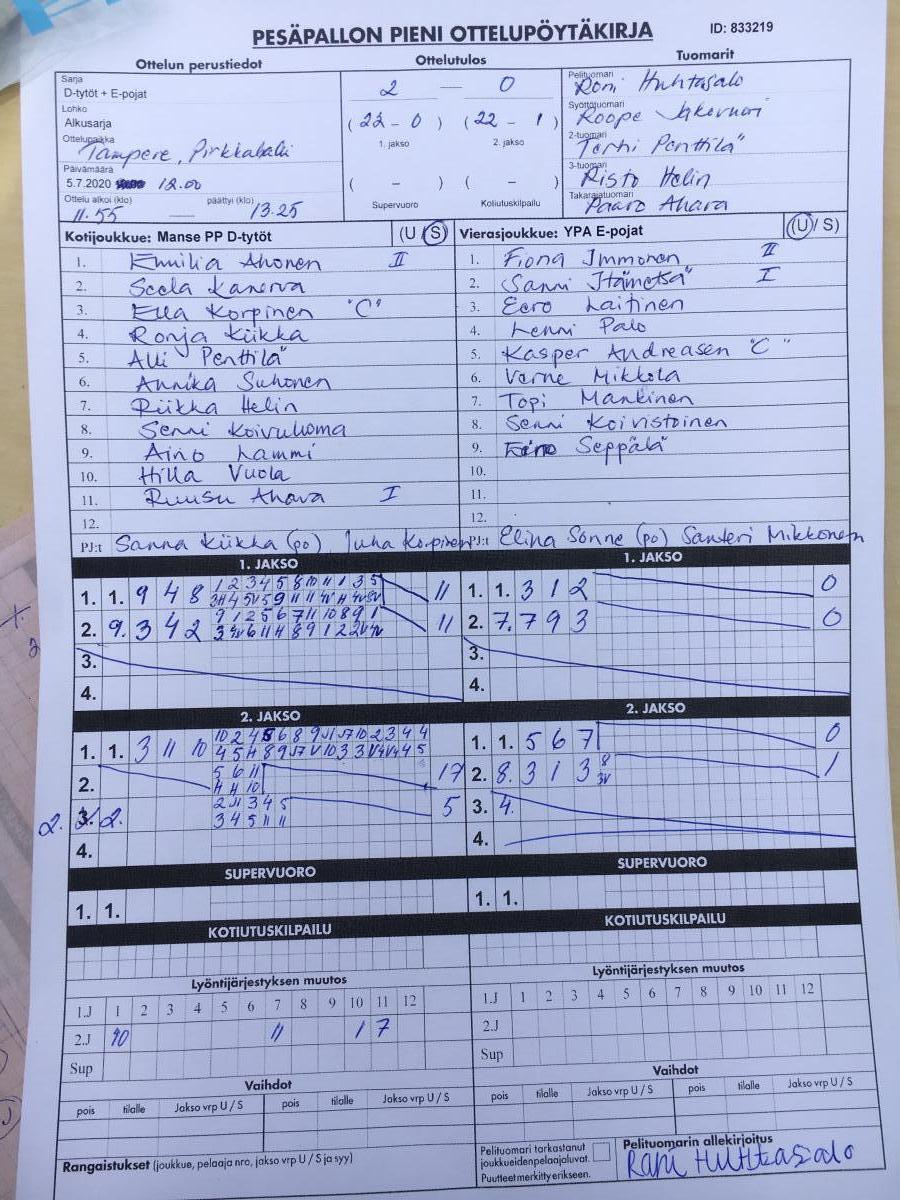 PESÄPALLON PIENI OTTELUPÖYTÄKIRJA ID: 833219
Ottelun perustiedot Ottelutulos Tuomarit
Sarja
D-tytöt + E-pojat
Lohko
Alkusarja
Ottelupaikka
Tampere, Pirkkahalli
Päivämäärä
5.7.2020 12.00
Ottelu alkoi (klo) päättyi (klo)
11.55 — 13.25
2 — 0
(22 - 0) (22 - 1)
1. jakso 2. jakso
( - ) ( - )
Supervuoro Kotiutuskilpailu
Pelituomari
Roni Huhtasalo
Syöttötuomari
Roope
2-tuomari
Terhi Penttilä
3-tuomari
Risto Helin
Takarajatuomari
Paavo Ahava
Kotijoukkue: Manse PP D-tytöt (U/S)
1. Emilia Ahonen II
2. Seela Kanerva
3. Ella Korpinen "C"
4. Ronja Kiikka
5. Alli Penttilä
6. Annika Suhonen
7. Riikka Helin
8. Senni Koivuluoma
9. Aino Lammi
10. Hilla Vuola
11. Ruusu Ahava I
12.
PJ:t Sanna Kiikka (po) Juha Korpinen
Vierasjoukkue: YPA E-pojat (U/S)
1. Fiona Immonen II
2. Sanni Itämetsä I
3. Eero Laitinen
4. Lenni Palo
5. Kasper Andreasen "C"
6. Verne Mikkola
7. Topi Mankinen
8. Senni Koivistoinen
9. Seppälä
10.
11.
12.
PJ:t Elina Sonne (po) Santeri Mikkonen
1. JAKSO
1. 1. 9 4 8 11
2. 9. 3 4 2 11
3.
4.
1. JAKSO
1. 1. 3 1 2 0
2. 7. 7 9 3 0
3.
4.
2. JAKSO
1. 1. 3 11 10
2. 17
5 6 11
4 4 10
2. 3. 2. 5
2 11 3 4 5
3 4 5 11 11
4.
2. JAKSO
1. 1. 5 6 7 0
2. 8. 3 1 3 8 1
3V
3. 4.
4.
SUPERVUORO
1. 1.
SUPERVUORO
1. 1.
KOTIUTUSKILPAILU
KOTIUTUSKILPAILU
Lyöntijärjestyksen muutos
1.J 1 2 3 4 5 6 7 8 9 10 11 12
2.J 10 11 1 7
Sup
Lyöntijärjestyksen muutos
1.J 1 2 3 4 5 6 7 8 9 10 11 12
2.J
Sup
Vaihdot
pois tilalle Jakso vrp U / S pois tilalle Jakso vrp U / S
Vaihdot
pois tilalle Jakso vrp U / S pois tilalle Jakso vrp U / S
Rangaistukset (joukkue, pelaaja nro, jakso vrp U / S ja syy)
Pelituomari tarkastanut
joukkueidenpelaajaluvat.
Puutteet merkitty erikseen.
Pelituomarin allekirjoitus